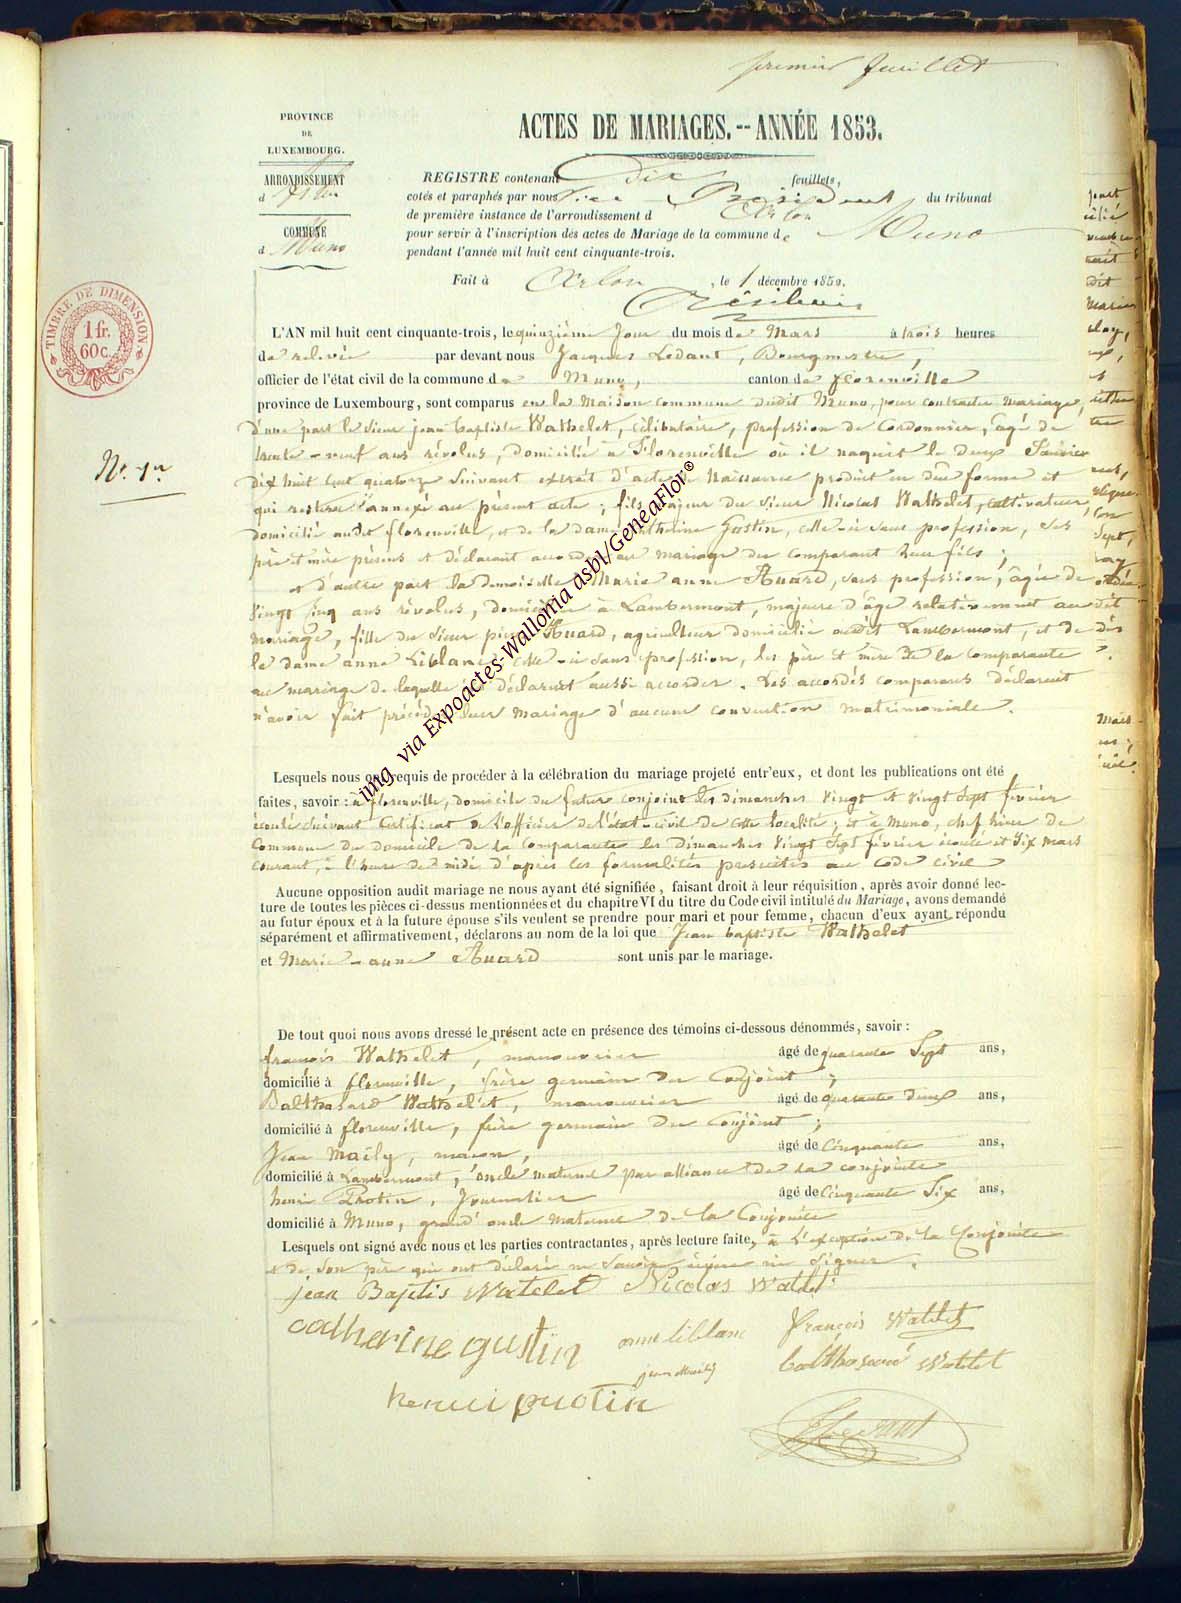 premier feuillet
PROVINCE
DE
LUXEMBOURG.
ACTES DE MARIAGES.--ANNÉE 1853.
ARRONDISSEMENT
d'Arlon
COMMUNE
de Muno
REGISTRE contenant Dix feuillets,
cotés et paraphés par nous Vice-Président du tribunal
de première instance de l'arrondissement d'Arlon
pour servir à l'inscription des actes de Mariage de la commune de Muno
pendant l'année mil huit cent cinquante-trois.
Fait à Arlon, le 1 décembre 1852.
TIMBRE DE DIMENSION
1 fr.
60c.
N.° 1.er
L'AN mil huit cent cinquante-trois, le quinzième Jour du mois de Mars à trois heures
de relevée par devant nous Jacques Ledant, Bourgmestre,
officier de l'état civil de la commune de Muno, canton de florenville
province de Luxembourg, sont comparus en la Maison commune dudit Muno, pour contracter mariage,
d'une part le sieur jean baptiste Wathelet, célibataire, profession de Cordonnier, âgé de
trente-neuf ans révolus, domicilié à Florenville où il naquit le deux Janvier
dix huit cent quatorze suivant extrait d'acte de Naissance produit en due forme et
qui restera annexé au présent acte; fils majeur du sieur Nicolas Wathelet, cultivateur,
domicilié audit florenville, et de la dame Catherine Gustin, celle-ci sans profession, ses
père et mère présens et déclarant accorder au mariage du comparant leur fils;
et d'autre part la demoiselle Marie anne Huard, sans profession, âgée de
vingt cinq ans révolus, domiciliée à Lambermont, majeure d'âge relativement au
mariage, fille du sieur pierre Huard, agriculteur domicilié audit Lambermont, et de
la dame anne Leblanc, celle-ci sans profession, les père et mère de la comparante
au mariage de laquelle ils déclarent aussi accorder. Les accordés comparans déclarent
n'avoir fait précéder leur mariage d'aucune convention matrimoniale.
img via Expoactes-Wallonia asbl/GeneaFlor®
Lesquels nous ont requis de procéder à la célébration du mariage projeté entr'eux, et dont les publications ont été
faites, savoir: à florenville, domicile du futur conjoint les dimanches vingt et vingt sept février
écoulé suivant certificat de l'officier de l'état-civil de cette localité; et à Muno, chef lieu de
commune du domicile de la comparante les dimanches vingt sept février écoulé et six mars
courant, à l'heure de midi d'après les formalités prescrites au code civil
Aucune opposition audit mariage ne nous ayant été signifiée, faisant droit à leur réquisition, après avoir donné lec-
ture de toutes les pièces ci-dessus mentionnées et du chapitre VI du titre du Code civil intitulé du Mariage, avons demandé
au futur époux et à la future épouse s'ils veulent se prendre pour mari et pour femme, chacun d'eux ayant répondu
séparément et affirmativement, déclarons au nom de la loi que Jean baptiste Wathelet
et Marie-anne Huard sont unis par le mariage.
De tout quoi nous avons dressé le présent acte en présence des témoins ci-dessous dénommés, savoir:
françois Wathelet, manouvrier âgé de quarante sept ans,
domicilié à florenville, frère germain du Conjoint;
Balthasard Wathelet, manouvrier âgé de quarante deux ans,
domicilié à florenville, frère germain du Conjoint;
Jean Maily, maçon, âgé de Cinquante ans,
domicilié à Lambermont, oncle maternel par alliance de la conjointe
henri Protin, Journalier âgé de Cinquante Six ans,
domicilié à Muno, grand'oncle maternel de la Conjointe
Lesquels ont signé avec nous et les parties contractantes, après lecture faite, à l'exception de la Conjointe
et de son père qui ont déclaré ne savoir écrire ni signer.
jean Baptis Watelet Nicolas Watlet
catherine gustin anne leblanc françois Watelet
jean Maily balthasard Watelet
henri protin